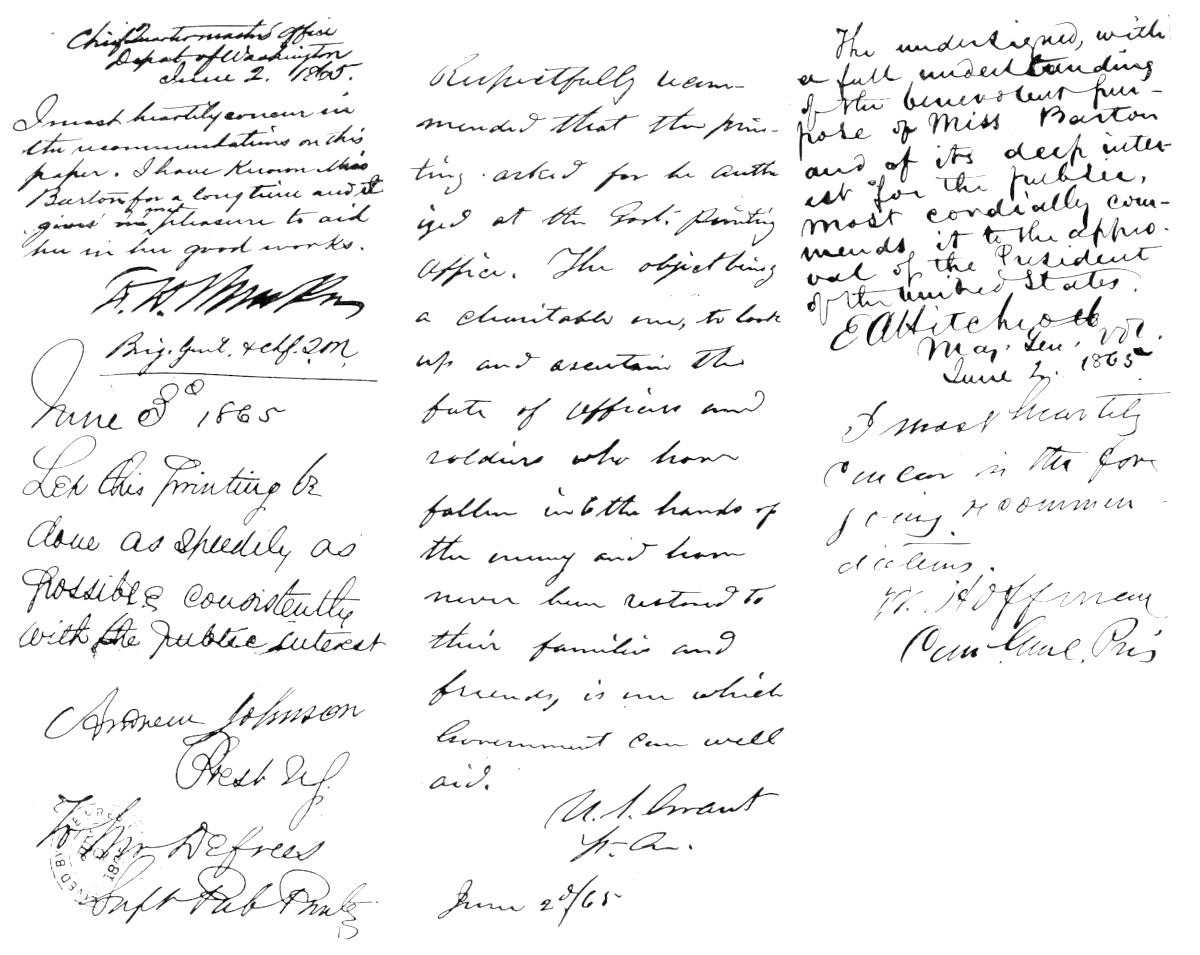 Chief Quartermasters Office
Depot of Washington
June 2. 1865.
I most heartily concur in
the recommendations on this
paper. I have known Miss
Barton for a long time and it
gives me great pleasure to aid
her in her good works.
Brig. Genl. & Chf. Q.M.
June 3d 1865
Let this printing be
done as speedily as
possible consistently
with the public interest
Andrew Johnson
Prest US.
To Mr Defrees
Supt Pub Printg
Respectfully recom-
mended that the prin-
ting asked for be autho
ized at the Govt. printing
office. The object being
a charitable one, to look
up and ascertain the
fate of officers and
soldiers who have
fallen into the hands of
the enemy and have
never been restored to
their families and
friends, is one which
Government can well
aid.
U.S. Grant
Lt. Gn.
June 2d/65
The undersigned, with
a full understanding
of the benevolent pur-
pose of Miss Barton
and of its deep inter-
est for the public,
most cordially com-
mends it to the appro-
val of the President
of the United States.
E A Hitchcock
Maj. Gen. Vol.
June 2. 1865
I most heartily
concur in the fore
going recommen
dations.
W. Hoffman
Com. Genl. Pris